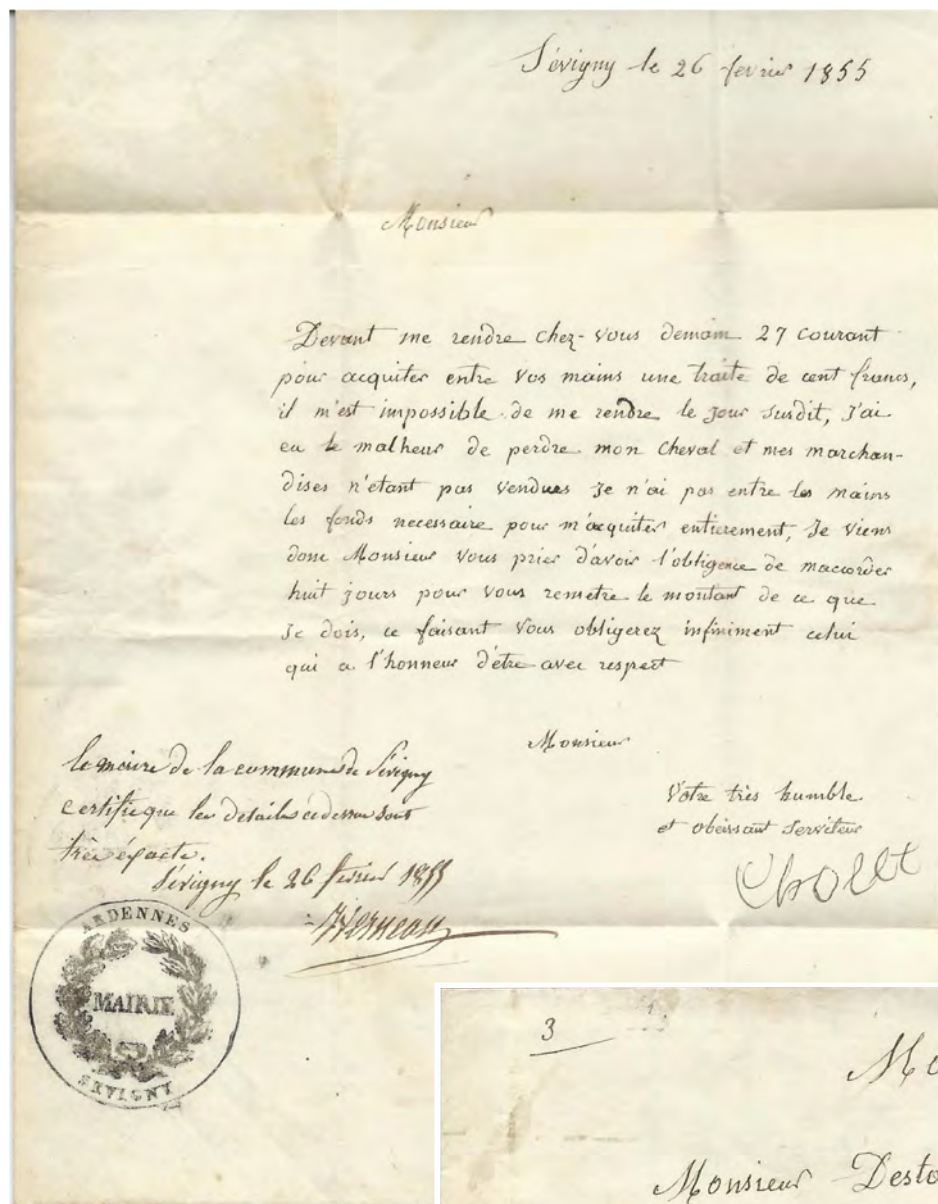 Sévigny le 26 fevrier 1855
Monsieur
Devant me rendre chez-vous demain 27 courant
pour acquiter entre vos mains une traite de cent francs,
il m'est impossible de me rendre le jour susdit, J'ai
eu le malheur de perdre mon cheval et mes marchan-
dises n'étant pas vendues Je n'ai pas entre les mains
les fonds necessaire pour m'acquiter entierement, Je viens
donc Monsieur vous prier d'avoir l'obligence de maccorder
huit jours pour vous remetre le montant de ce que
Je dois, ce faisant vous obligerez infiniment celui
qui a l'honneur d'être avec respect
Monsieur
Votre très humble
et obeissant Serviteur
Chollet
le maire de la commune de Sévigny
certifie que les details ci dessus sont
très éxacte.
Sévigny le 26 fevrier 1855
ARDENNES
MAIRIE
SEVIGNY
3
Mo
Monsieur Desto